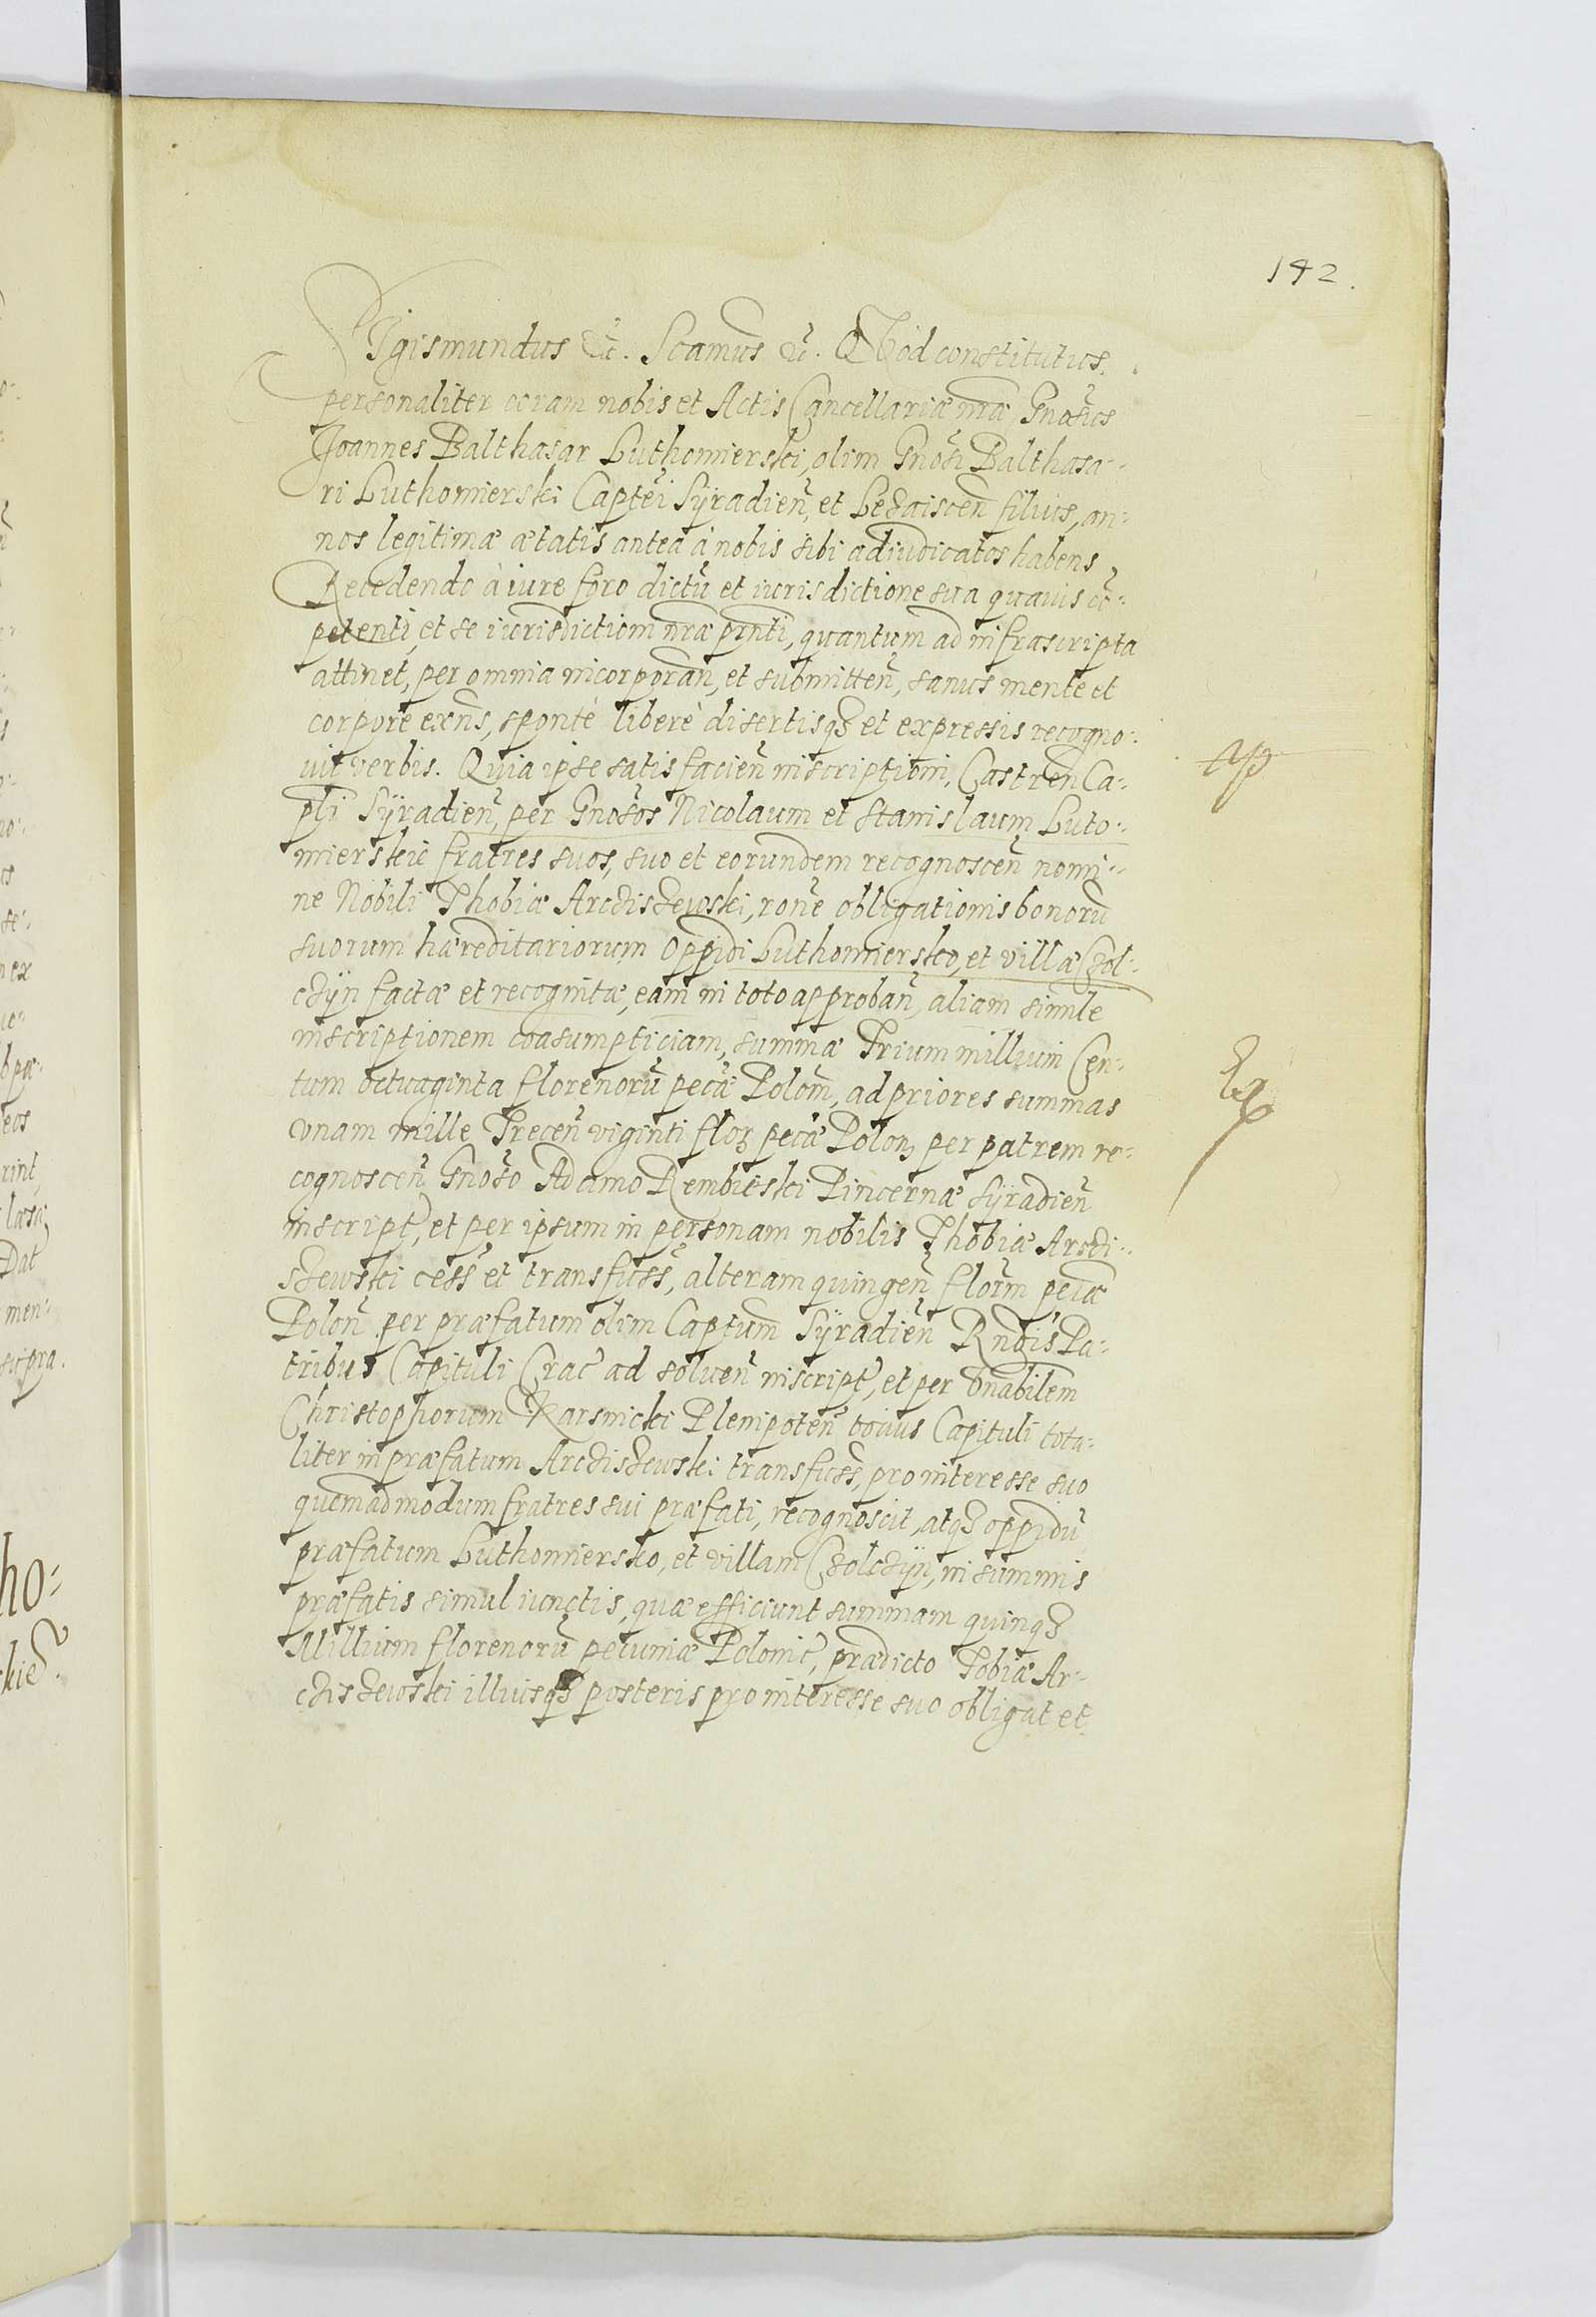 142.
Sigismundus etc. Scamus etc. Quod constitutus
personaliter coram nobis et Actis Cancellariæ nræ Gnosus
Joannes Balthasar Luthomierski, olim Gnosi Balthasa-
ri Luthomierski Captei Syradien, et Leczicen filius, an-
nos legitimæ ætatis antea à nobis sibi adiudicatos habens
Recedendo à iure foro dictu et iurisdictione sua quauis co-
petenti, et se iurisdictioni nræ pnti, quantum ad infrascripta
attinet, per omnia incorporan, et submitten, sanus mente et
corpore exns, sponte libere disertisq3 et expressis recogno-
uit verbis. Quia ipse satisfacien inscriptioni, Castren Ca-
pli Syradien, per Gnosos Nicolaum et Stanislaum Luto-
mierskie fratres suos, suo et eorundem recognoscen nomi-
ne Nobili Thobiæ Arczisdewski, rone obligationis bonoru
suorum hæreditariorum oppidi Luthomiersko, et villæ Czol-
czyn factæ et recognitæ, eam in toto approban, aliam simile
inscriptionem coasumpticiam, summæ Trium millium Cen-
tum octuaginta florenoru pecæ Polom, ad priores summas
vnam mille Trecen viginti flor pecæ Polon, per patrem re-
cognoscen Gnoso Adamo Rembieski Pincernæ Syradien
inscript, et per ipsum in personam nobilis Thobiæ Arczi-
szewski cess et transfuss, alteram quingen florm pecæ
Polon per præfatum olim Captum Syradien Rndis Pa-
tribus Capituli Crac ad soluen inscript, et per Onabilem
Christophorum Karsnicki Plenipoten totius Capituli tota-
liter in præfatum Arczisdewski transfuss, pro interesse suo
quemadmodum fratres sui præfati, recognoscit, atq3 oppidu
præfatum Luthomiersko, et villam Czolczyn, in summis
præfatis simul iunctis, quæ efficiunt summam quinq3
Millium florenoru pecuniæ Polonic, prædicto Tobiæ Ar-
czisdewski illiusq3 posteris pro interesse suo obligat et